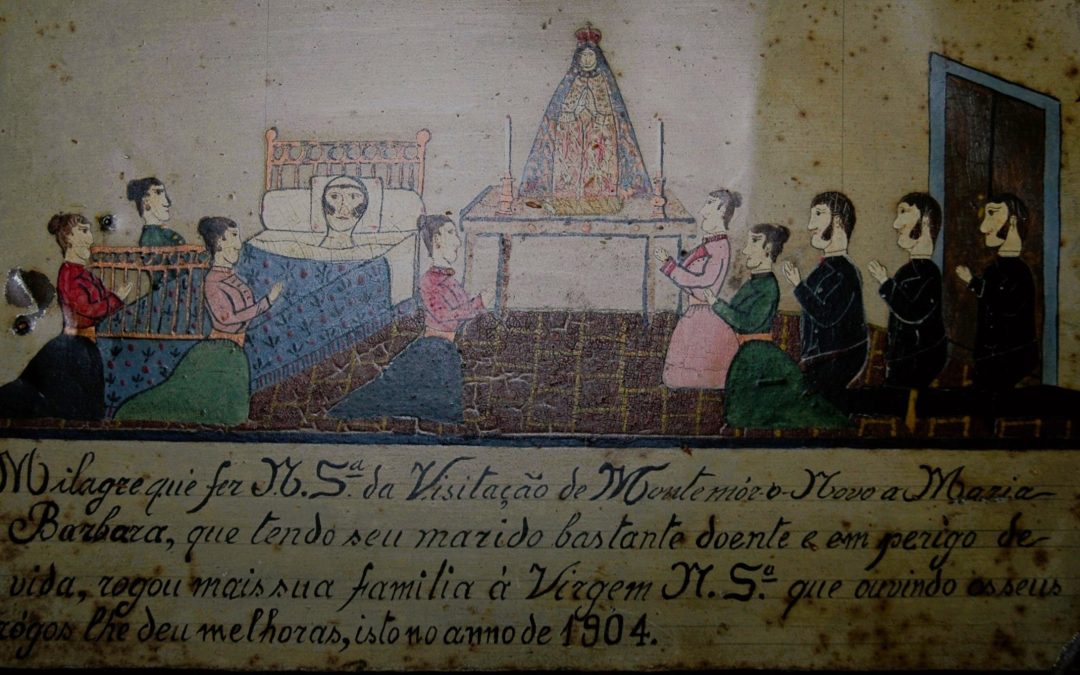 Milagre que fez N. S.ª da Visitação de Montemór-o-Novo a Maria
Barbara, que tendo seu marido bastante doente e em perigo de
vida, rogou mais sua familia á Virgem N. S.ª que ouvindo os seus
rógos lhe deu melhoras, isto no anno de 1904.